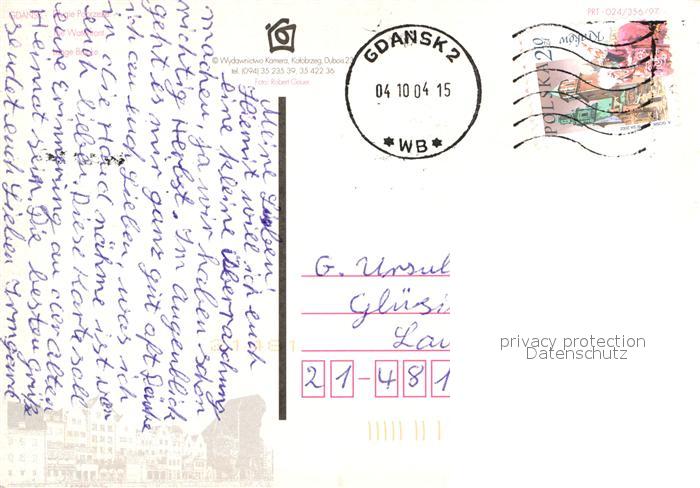 GDAŃSK
© Wydawnictwo Kamera, Kołobrzeg, Dubois 2
tel. (094) 35 235 39, 35 422 36
Foto: Robert Gauer
PRT - 024/356/97
GDAŃSK 2
04 10 04 15
* WB *
POLSKA
Meine Lieben!
Hiemit will ich euch
eine kleine Überraschung
machen, ja wir haben schon
richtig Herbst. Im Augenblick
geht es mir ganz gut oft
ich an euch Lieben, was ich
in die Hand nähme ist von
euch Lieben. Diese Karte soll
eine Erinnerung an der alten
Heimat sein. Die besten Grüße
sendet euch Lieben Irmgard
G. Ursul
Lau
21-481
21481
privacy protection
Datenschutz